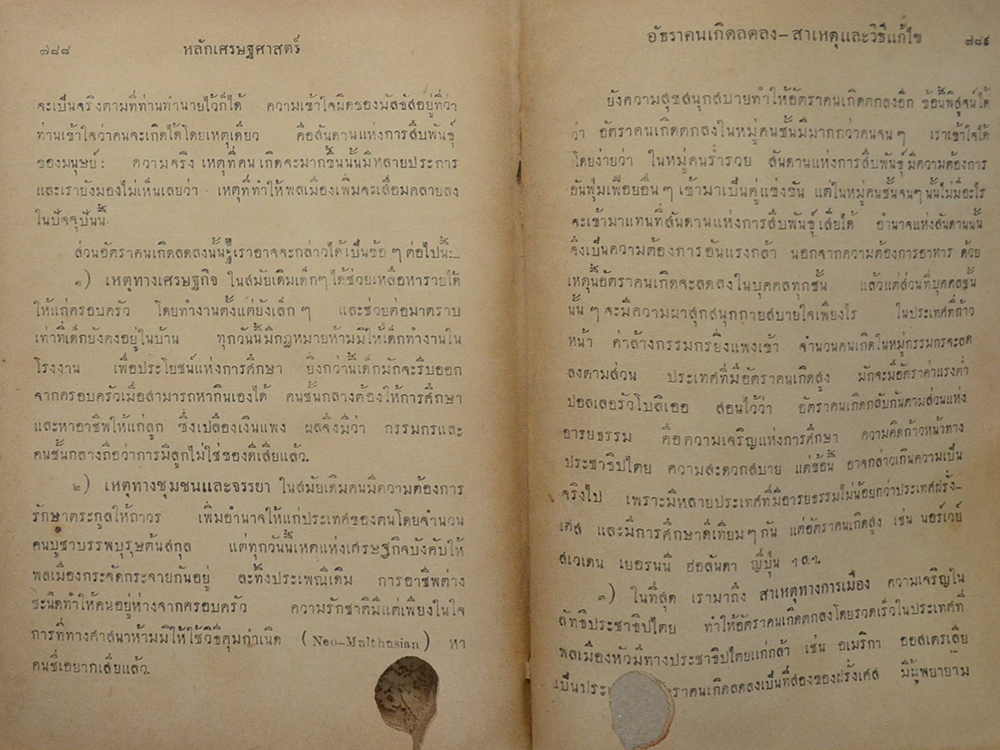 ๗๘๘
หลักเศรษฐศาสตร์
จะเป็นจริงตามที่ท่านทำนายไว้ก็ได้ ความเข้าใจผิดของมัลธัสอยู่ที่ว่า
ท่านเข้าใจว่าคนจะเกิดได้โดยเหตุเดียว คือสันดานแห่งการสืบพันธุ์
ของมนุษย์: ความจริง เหตุที่คนเกิดจะมากขึ้นนั้นมีหลายประการ
และเรายังมองไม่เห็นเลยว่า เหตุที่ทำให้พลเมืองเพิ่มจะเสื่อมคลายลง
ในปัจจุบันนี้
ส่วนอัตราคนเกิดลดลงนั้น เราอาจจะกล่าวได้เป็นข้อ ๆ ต่อไปนี้:—
๑) เหตุทางเศรษฐกิจ ในสมัยเดิมเด็กๆ ได้ช่วยเหลือหารายได้
ให้แก่ครอบครัว โดยทำงานตั้งแต่ยังเล็ก ๆ และช่วยต่อมาตราบ
เท่าที่เด็กยังคงอยู่ในบ้าน ทุกวันนี้มีกฎหมายห้ามมิให้เด็กทำงานใน
โรงงาน เพื่อประโยชน์แห่งการศึกษา ยิ่งกว่านี้เด็กมักจะรีบออก
จากครอบครัวเมื่อสามารถหากินเองได้ คนชั้นกลางต้องให้การศึกษา
และหาอาชีพให้แก่ลูก ซึ่งเปลืองเงินแพง ผลจึงมีว่า กรรมกรและ
คนชั้นกลางถือว่าการมีลูกไม่ใช่ของดีเสียแล้ว.
๒) เหตุทางชุมชนและจรรยา ในสมัยเดิมคนมีความต้องการ
รักษาตระกูลให้ถาวร เพิ่มอำนาจให้แก่ประเทศของตนโดยจำนวน
คนบูชาบรรพบุรุษต้นสกุล แต่ทุกวันนี้เหตุแห่งเศรษฐกิจบังคับให้
พลเมืองกระจัดกระจายกันอยู่ ละทิ้งประเพณีเดิม การอาชีพต่าง
ชะนิดทำให้คนอยู่ห่างจากครอบครัว ความรักชาติมีแต่เพียงในใจ
การที่ทางศาสนาห้ามมิให้ใช้วิธีคุมกำเนิด (Neo-Malthusian) หา
คนเชื่อยากเสียแล้ว.
อัธราคนเกิดลดลง—สาเหตุและวิธีแก้ไข
๗๘๙
ยังความสุขสนุกสบายทำให้อัตราคนเกิดตกลงอีก ข้อนี้พิสูจน์ได้
ว่า อัตราคนเกิดตกลงในหมู่คนชั้นมีมากกว่าคนจนๆ เราเข้าใจได้
โดยง่ายว่า ในหมู่คนร่ำรวย สันดานแห่งการสืบพันธุ์มีความต้องการ
อันฟุ่มเฟือยอื่น ๆ เข้ามาเป็นคู่แข่งขัน แต่ในหมู่คนชั้นจนๆ นั้นไม่มีอะไร
จะเข้ามาแทนที่สันดานแห่งการสืบพันธุ์เสียได้ อำนาจแห่งสันดานนั้น
จึงเป็นความต้องการอันแรงกล้า นอกจากความต้องการอาหาร ด้วย
เหตุนี้อัตราคนเกิดจะลดลงในบุคคลทุกชั้น แล้วแต่ส่วนที่บุคคลชั้น
นั้น ๆ จะมีความผาสุกสนุกกายสบายใจเพียงไร ในประเทศที่ก้าว
หน้า ค่าจ้างกรรมกรยิ่งแพงเข้า จำนวนคนเกิดในหมู่กรรมกรจะลด
ลงตามส่วน ประเทศที่มีอัตราคนเกิดสูง มักจะมีอัตราค่าแรงต่ำ
ปอลเลอรัวโบลิเออ สอนไว้ว่า อัตราคนเกิดกลับกันตามส่วนแห่ง
อารยธรรม คือความเจริญแห่งการศึกษา ความคิดก้าวหน้าทาง
ประชาธิปไตย ความสะดวกสบาย แต่ข้อนี้ อาจกล่าวเกินความเป็น
จริงไป เพราะมีหลายประเทศที่มีอารยธรรมไม่น้อยกว่าประเทศฝรั่ง—
เศส และมีการศึกษาดีเทียมๆ กัน แต่อัตราคนเกิดสูง เช่น นอร์เวย์
สเวเดน เยอรมนี ฮอลันดา ญี่ปุ่น ฯลฯ.
๓) ในที่สุด เรามาถึง สาเหตุทางการเมือง ความเจริญใน
ลัทธิประชาธิปไตย ทำให้อัตราคนเกิดตกลงโดยรวดเร็วในประเทศที่
พลเมืองหัวมีทางประชาธิปไตยแก่กล้า เช่น อเมริกา ออสเตรเลีย
เป็นประเ ราคนเกิดลดลงเป็นที่สองของฝรั่งเศส มีผู้พยายาม